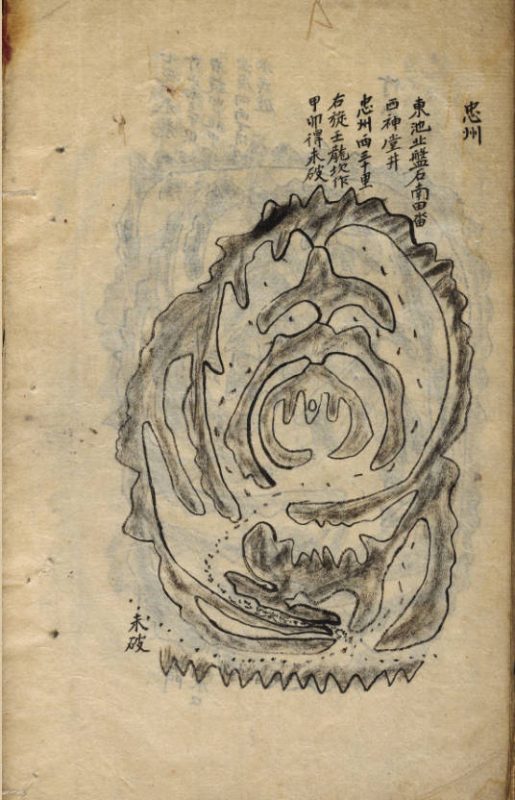 忠州
東池北盤石南田畓
西神堂井
忠州西三十里
右旋壬龍坎作
甲卯得未破
未破